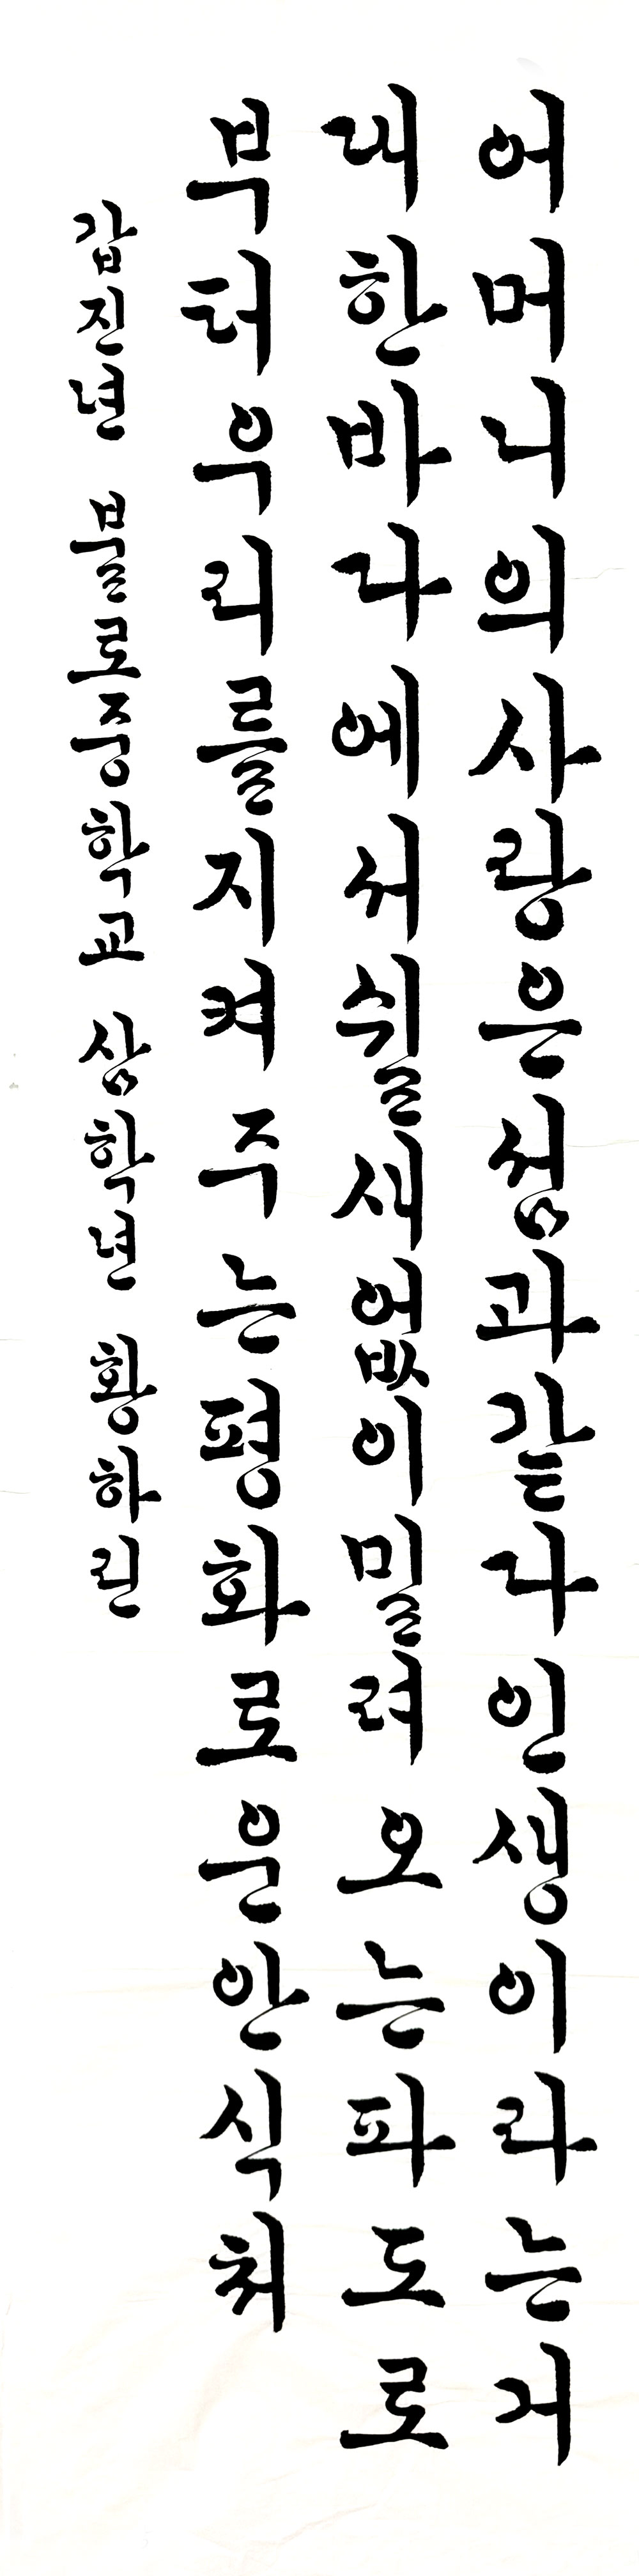 어머니의사랑은섬과같다인생이라는거
대한바다에서쉴새없이밀려오는파도로
부터우리를지켜주는평화로운안식처
갑진년 불로중학교 삼학년 황하린